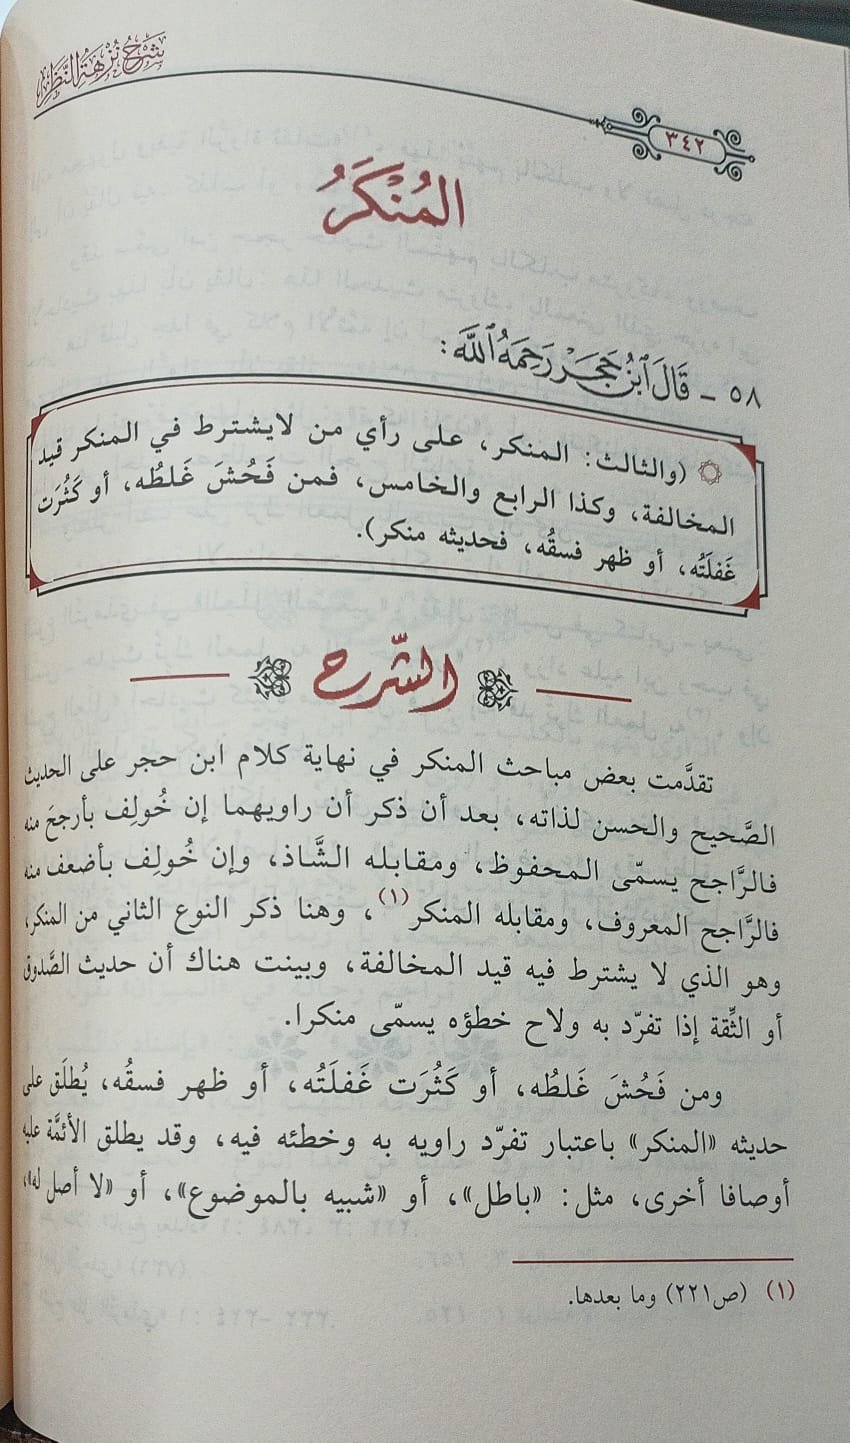 شَرْحُ نُزْهَةُ النَّظَرِ
٣٤٢
المُنْكَرُ
٥٨ - قَالَ ابْنُ حَجَرٍ رَحِمَهُ اللَّهُ:
(والثالث: المنكر، على رأي من لايشترط في المنكر قيد
المخالفة، وكذا الرابع والخامس، فمن فَحُشَ غَلطُه، أو كَثُرَت
غَفلَتُه، أو ظهر فسقُه، فحديثه منكر).
الشّرح
تقدَّمت بعض مباحث المنكر في نهاية كلام ابن حجر على الحديث
الصَّحيح والحسن لذاته، بعد أن ذكر أن راويهما إن خُولِف بأرجحَ منه
فالرَّاجح يسمّى المحفوظ، ومقابله الشَّاذ، وإن خُولِف بأضعف منه
فالرَّاجح المعروف، ومقابله المنكر(١)، وهنا ذكر النوع الثاني من المنكر،
وهو الذي لا يشترط فيه قيد المخالفة، وبينت هناك أن حديث الصَّدوق
أو الثِّقة إذا تفرّد به ولاح خطؤه يسمّى منكرا.
ومن فَحُشَ غَلطُه، أو كَثُرَت غَفلَتُه، أو ظهر فسقُه، يُطلَق على
حديثه «المنكر» باعتبار تفرّد راويه به وخطئه فيه، وقد يطلق الأئمَّة عليه
أوصافا أخرى، مثل: «باطل»، أو «شبيه بالموضوع»، أو «لا أصل له»،
(١) (ص٢٢١) وما بعدها.